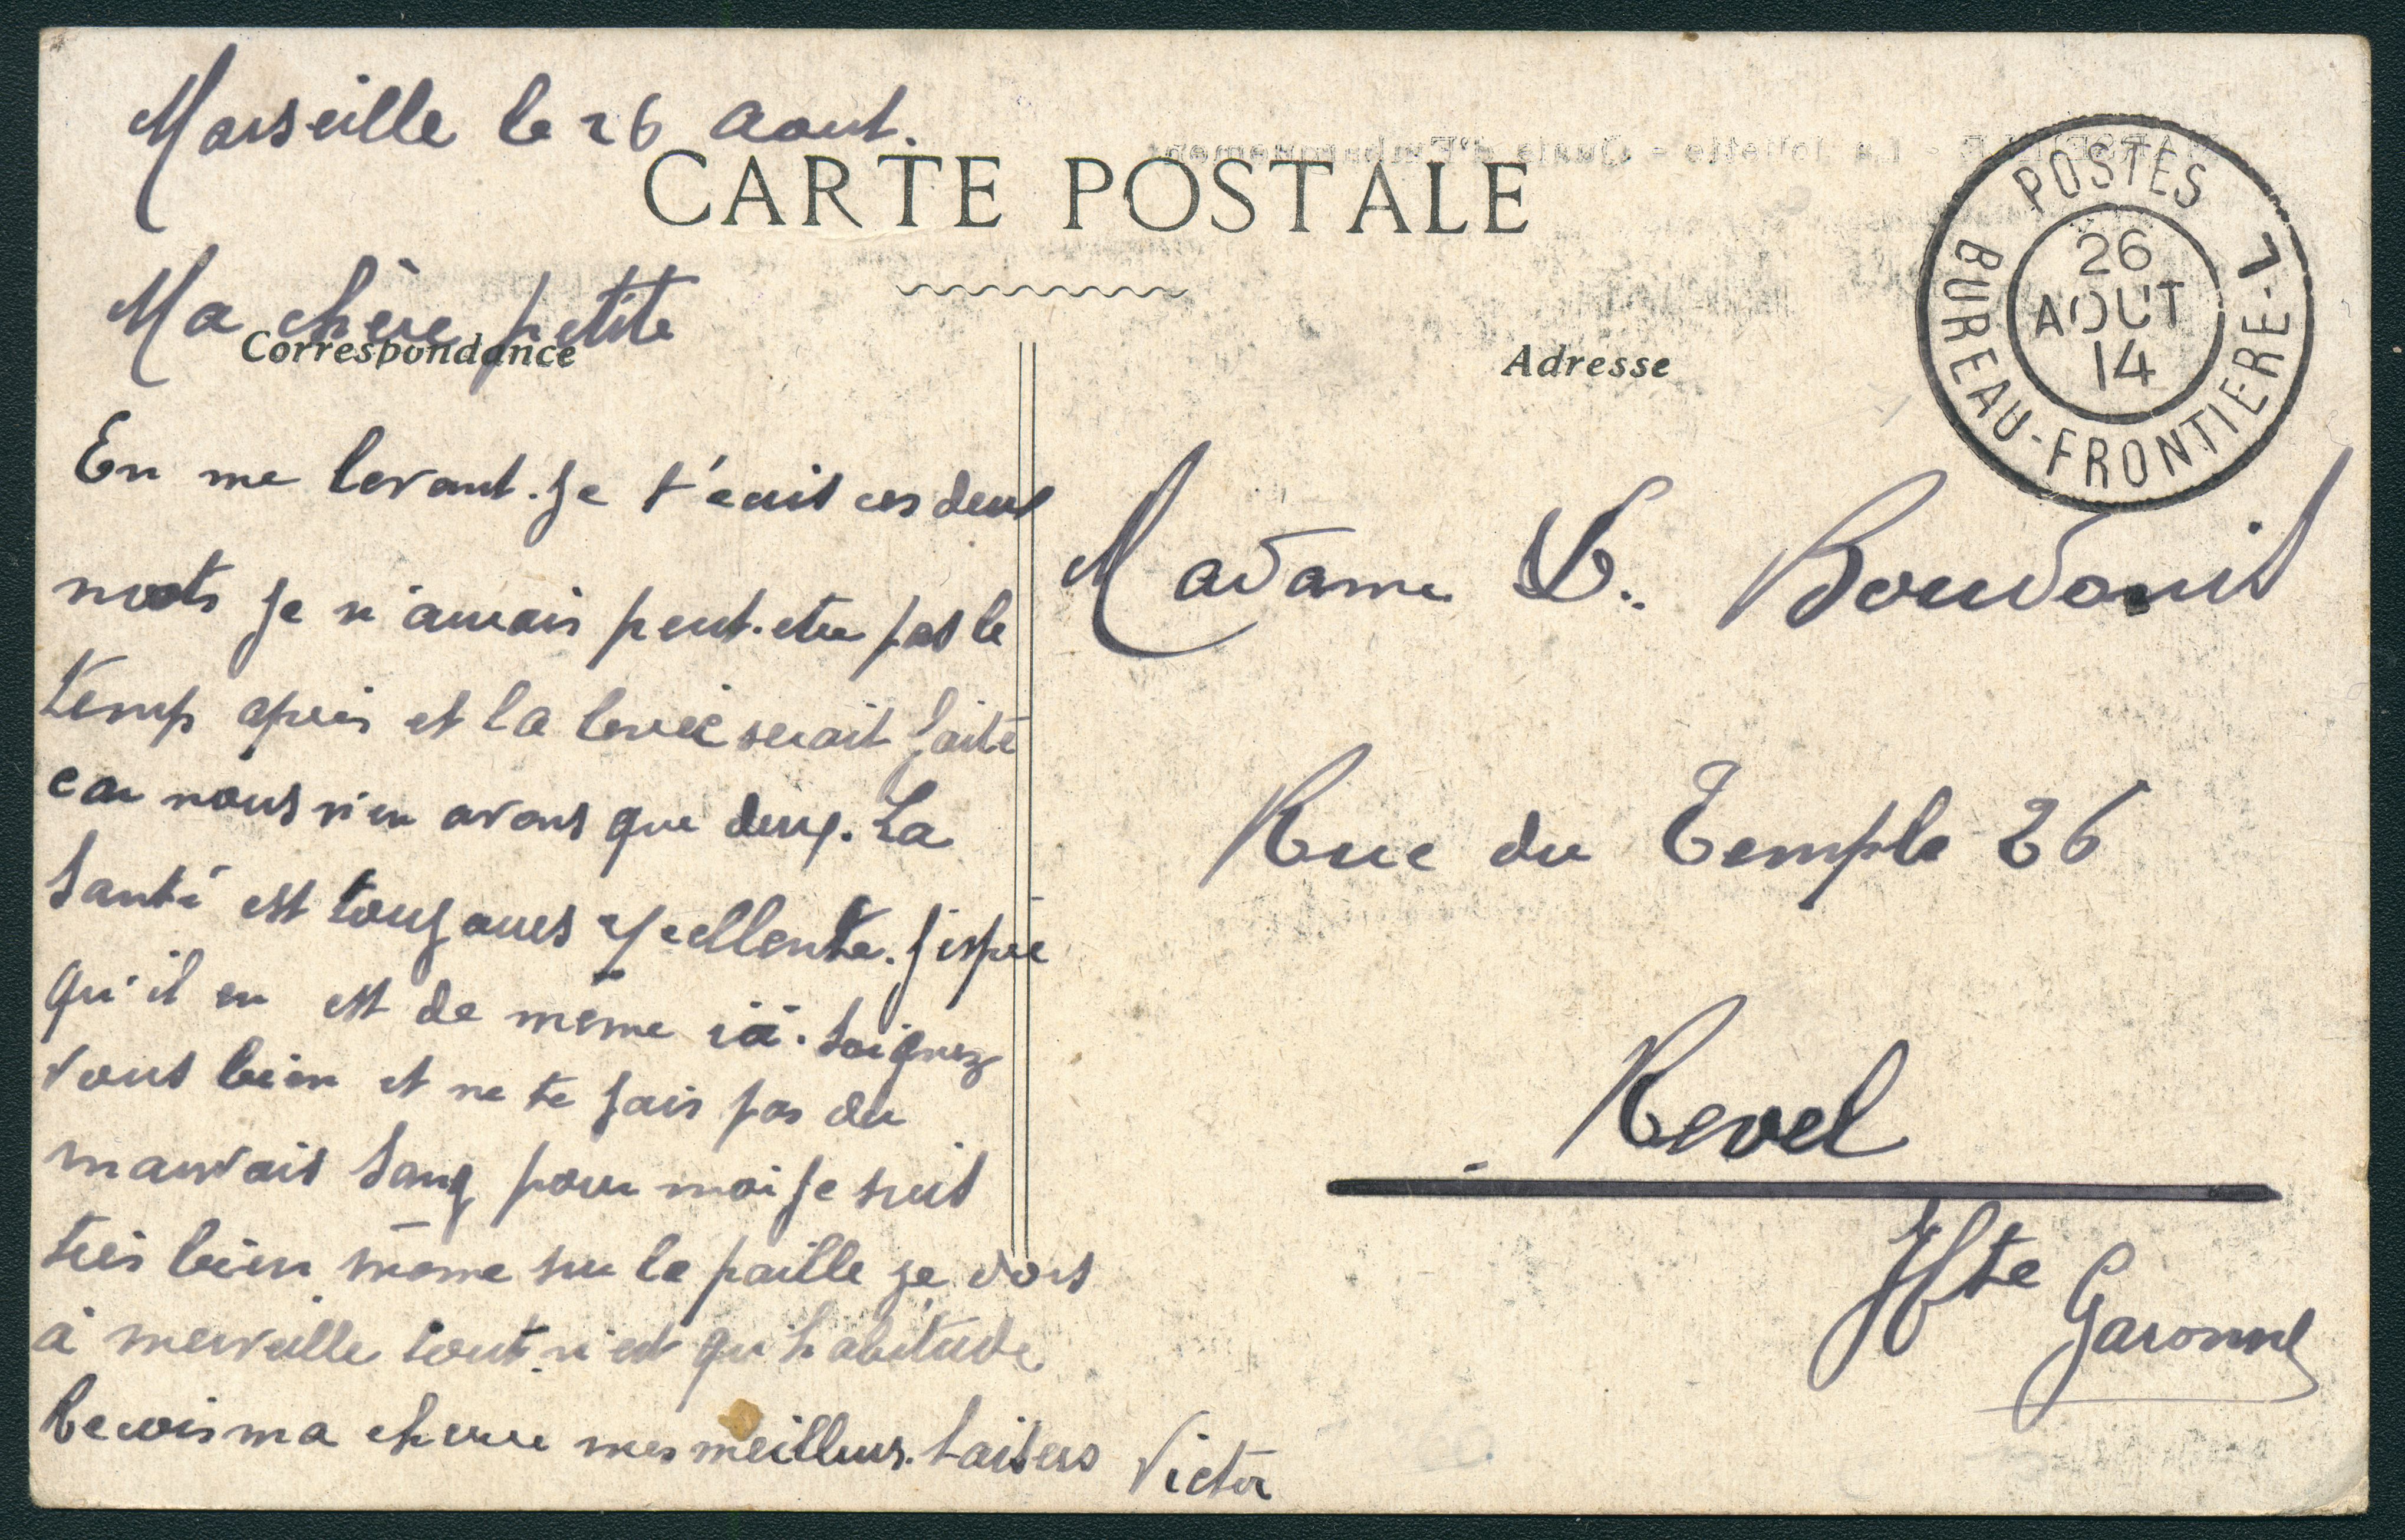 Marseille le 26 Aout.
CARTE POSTALE
Ma chère petite
Correspondance
En me levant. Je t'ecrit ces deux
mots je n'aurais peut. etre pas le
temp aprés et la levée serait faite
car nous n'en avons que deux. La
Santé est toujours excellente. J'espère
qu'il en est de même ici. Soignez
vous bien et ne te fais pas du
mauvais Sang pour moi je suis
tres bien même sur la paille je dors
à merveille tout n'est qu'habitude
Recois ma cherie mes meilleurs. baisers Victor
Adresse
POSTES
26
AOUT
14
BUREAU-FRONTIERE-L
Madame V. Boudouis
Rue du Temple 26
Revel
Hte
Garonne